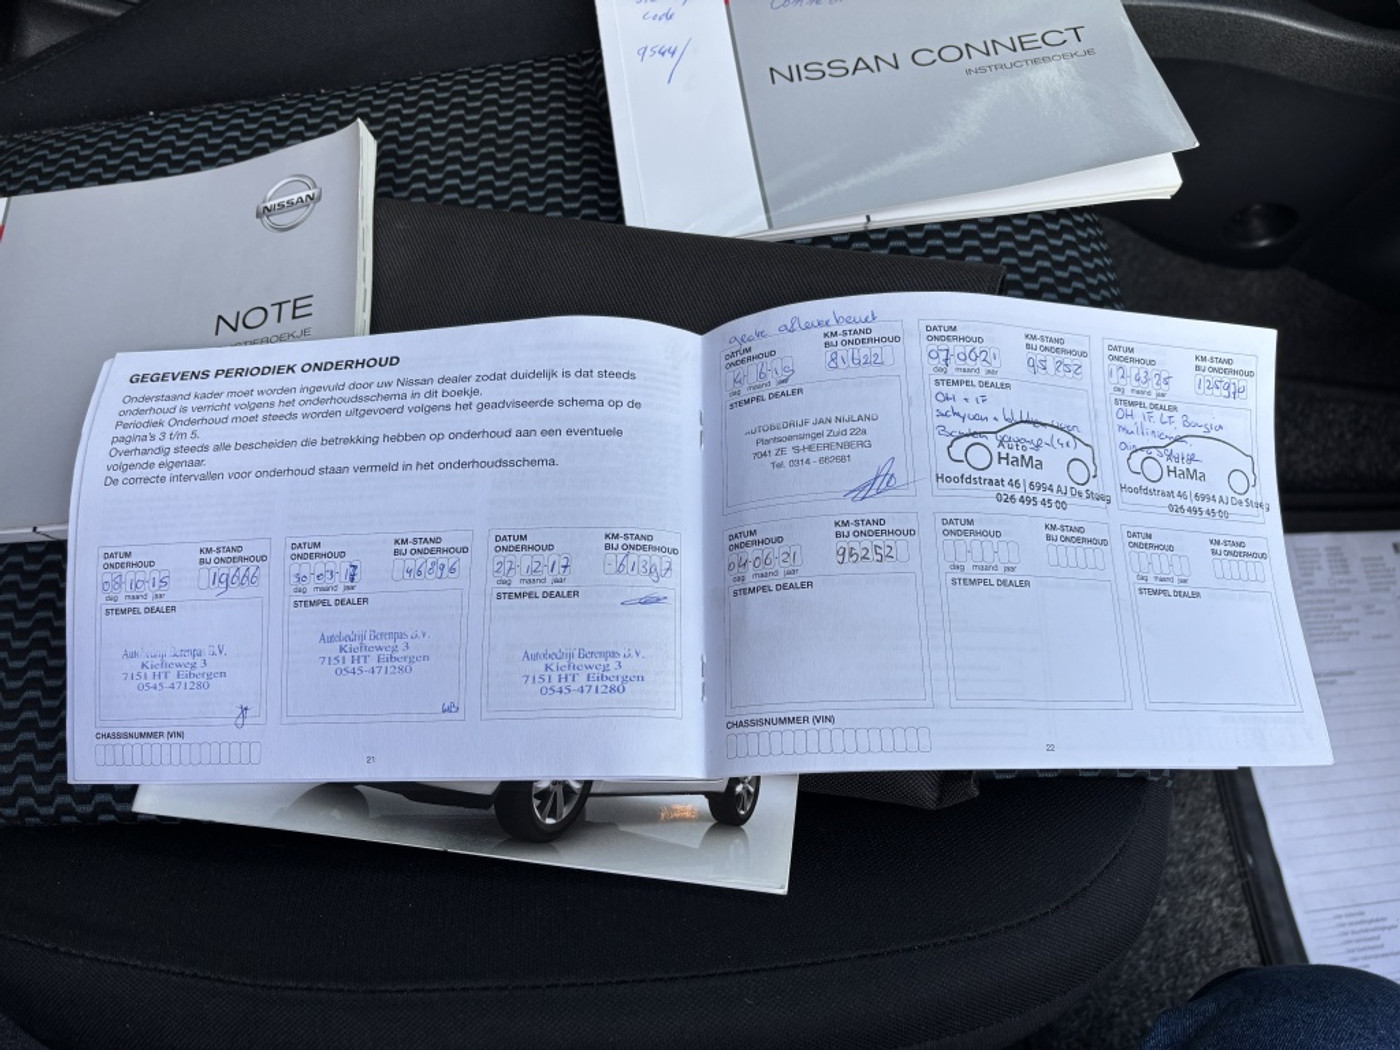 code
9544/
NISSAN CONNECT
INSTRUCTIEBOEKJE
NISSAN
NOTE
GEGEVENS PERIODIEK ONDERHOUD
Onderstaand kader moet worden ingevuld door uw Nissan dealer zodat duidelijk is dat steeds
onderhoud is verricht volgens het onderhoudsschema in dit boekje.
Periodiek Onderhoud moet steeds worden uitgevoerd volgens het geadviseerde schema op de
pagina's 3 t/m 5.
Overhandig steeds alle bescheiden die betrekking hebben op onderhoud aan een eventuele
volgende eigenaar.
De correcte intervallen voor onderhoud staan vermeld in het onderhoudsschema.
DATUM ONDERHOUD
KM-STAND BIJ ONDERHOUD
08-10-15
19666
dag maand jaar
STEMPEL DEALER
Autobedrijf Berenpas B.V.
Kiefteweg 3
7151 HT Eibergen
0545-471280
DATUM ONDERHOUD
KM-STAND BIJ ONDERHOUD
30-03-17
46896
dag maand jaar
STEMPEL DEALER
Autobedrijf Berenpas B.V.
Kiefteweg 3
7151 HT Eibergen
0545-471280
DATUM ONDERHOUD
KM-STAND BIJ ONDERHOUD
27-12-17
61397
dag maand jaar
STEMPEL DEALER
Autobedrijf Berenpas B.V.
Kiefteweg 3
7151 HT Eibergen
0545-471280
CHASSISNUMMER (VIN)
21
grote afleverbeurt
DATUM ONDERHOUD
KM-STAND BIJ ONDERHOUD
81622
dag maand jaar
STEMPEL DEALER
AUTOBEDRIJF JAN NIJLAND
Plantsoensingel Zuid 22a
7041 ZE 'S-HEERENBERG
Tel. 0314 - 662681
DATUM ONDERHOUD
KM-STAND BIJ ONDERHOUD
07-06-21
95252
dag maand jaar
STEMPEL DEALER
OH + IF
Auto
HaMa
Hoofdstraat 46 | 6994 AJ De Steeg
026 495 45 00
DATUM ONDERHOUD
KM-STAND BIJ ONDERHOUD
12-03-25
125970
dag maand jaar
STEMPEL DEALER
OH, IF, LF, Bougies
HaMa
Hoofdstraat 46 | 6994 AJ De Steeg
026 495 45 00
DATUM ONDERHOUD
KM-STAND BIJ ONDERHOUD
04-06-21
95252
dag maand jaar
STEMPEL DEALER
DATUM ONDERHOUD
KM-STAND BIJ ONDERHOUD
dag maand jaar
STEMPEL DEALER
DATUM ONDERHOUD
KM-STAND BIJ ONDERHOUD
dag maand jaar
STEMPEL DEALER
CHASSISNUMMER (VIN)
22